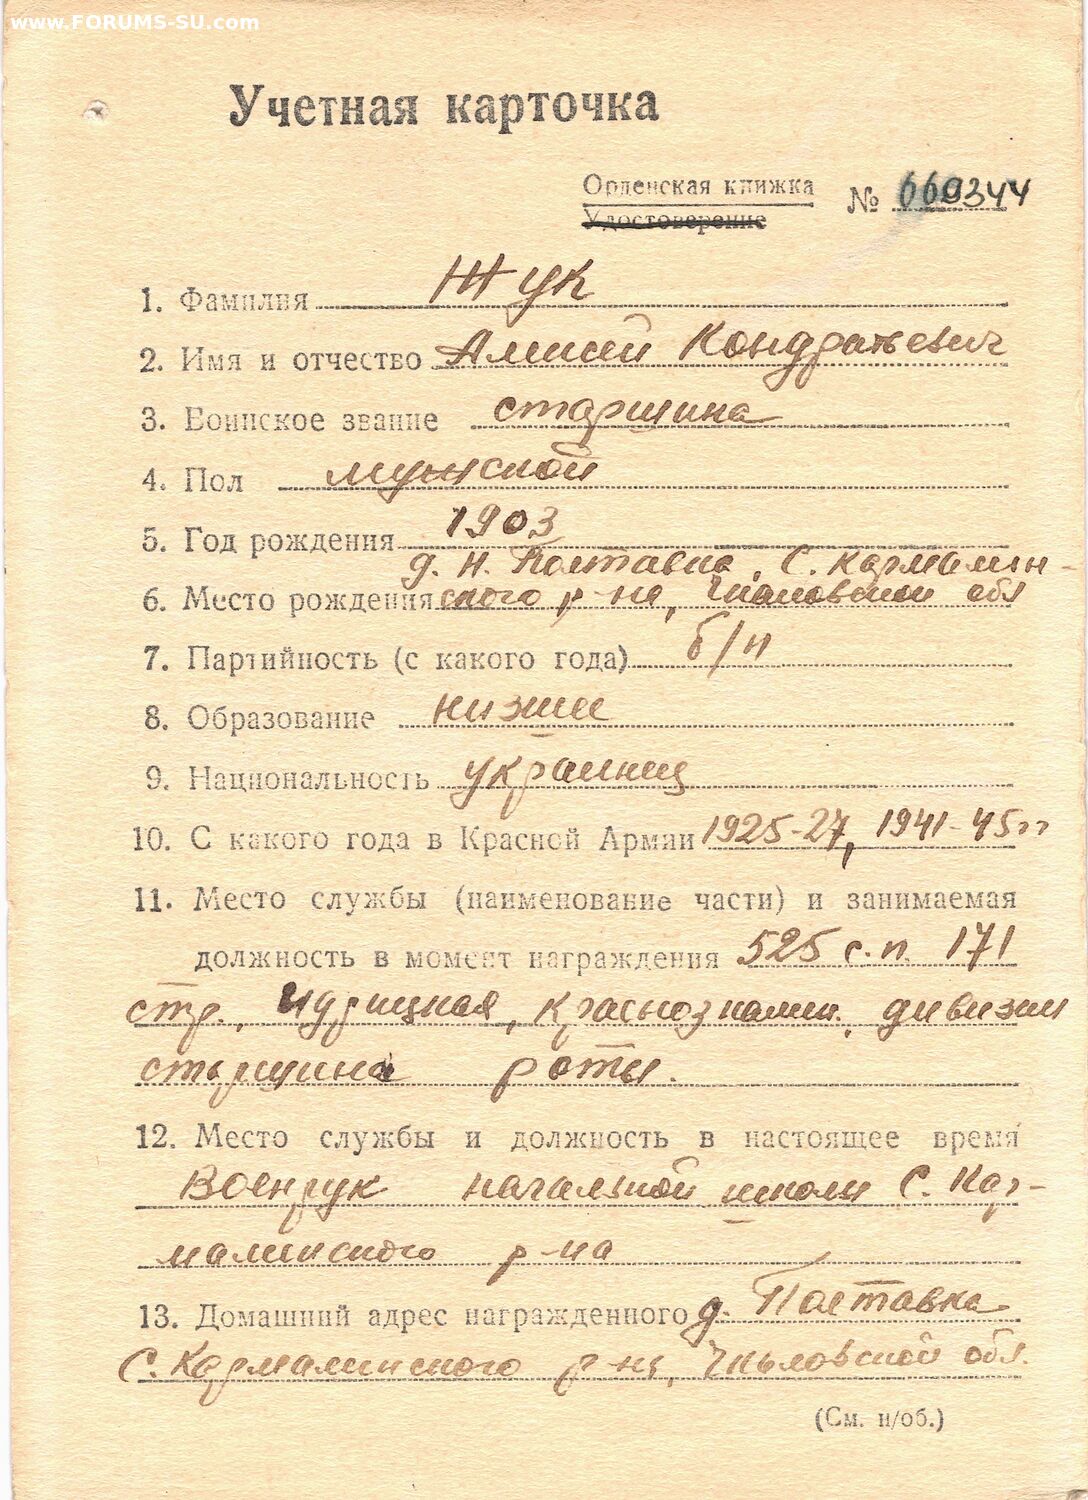 www.FORUMS-SU.com
Учетная карточка
Орденская книжка
Удостоверение
№ 669344
1. Фамилия Жук
2. Имя и отчество Алексей Кондратьевич
3. Воинское звание старшина
4. Пол мужской
5. Год рождения 1903
д. Н. Полтавка, С. Кармалин-
6. Место рождения ского р-на, Чкаловской обл
7. Партийность (с какого года) б/п
8. Образование низшее
9. Национальность украинец
10. С какого года в Красной Армии 1925-27, 1941-45гг
11. Место службы (наименование части) и занимаемая
должность в момент награждения 525 с.п. 171
стр., Идрицкая, краснознамен. дивизии
старшина роты.
12. Место службы и должность в настоящее время
Военрук начальной школы С. Кар-
малинского р-на
13. Домашний адрес награжденного д. Полтавка
С. Кармалинского р-на, Чкаловской обл.
(См. н/об.)